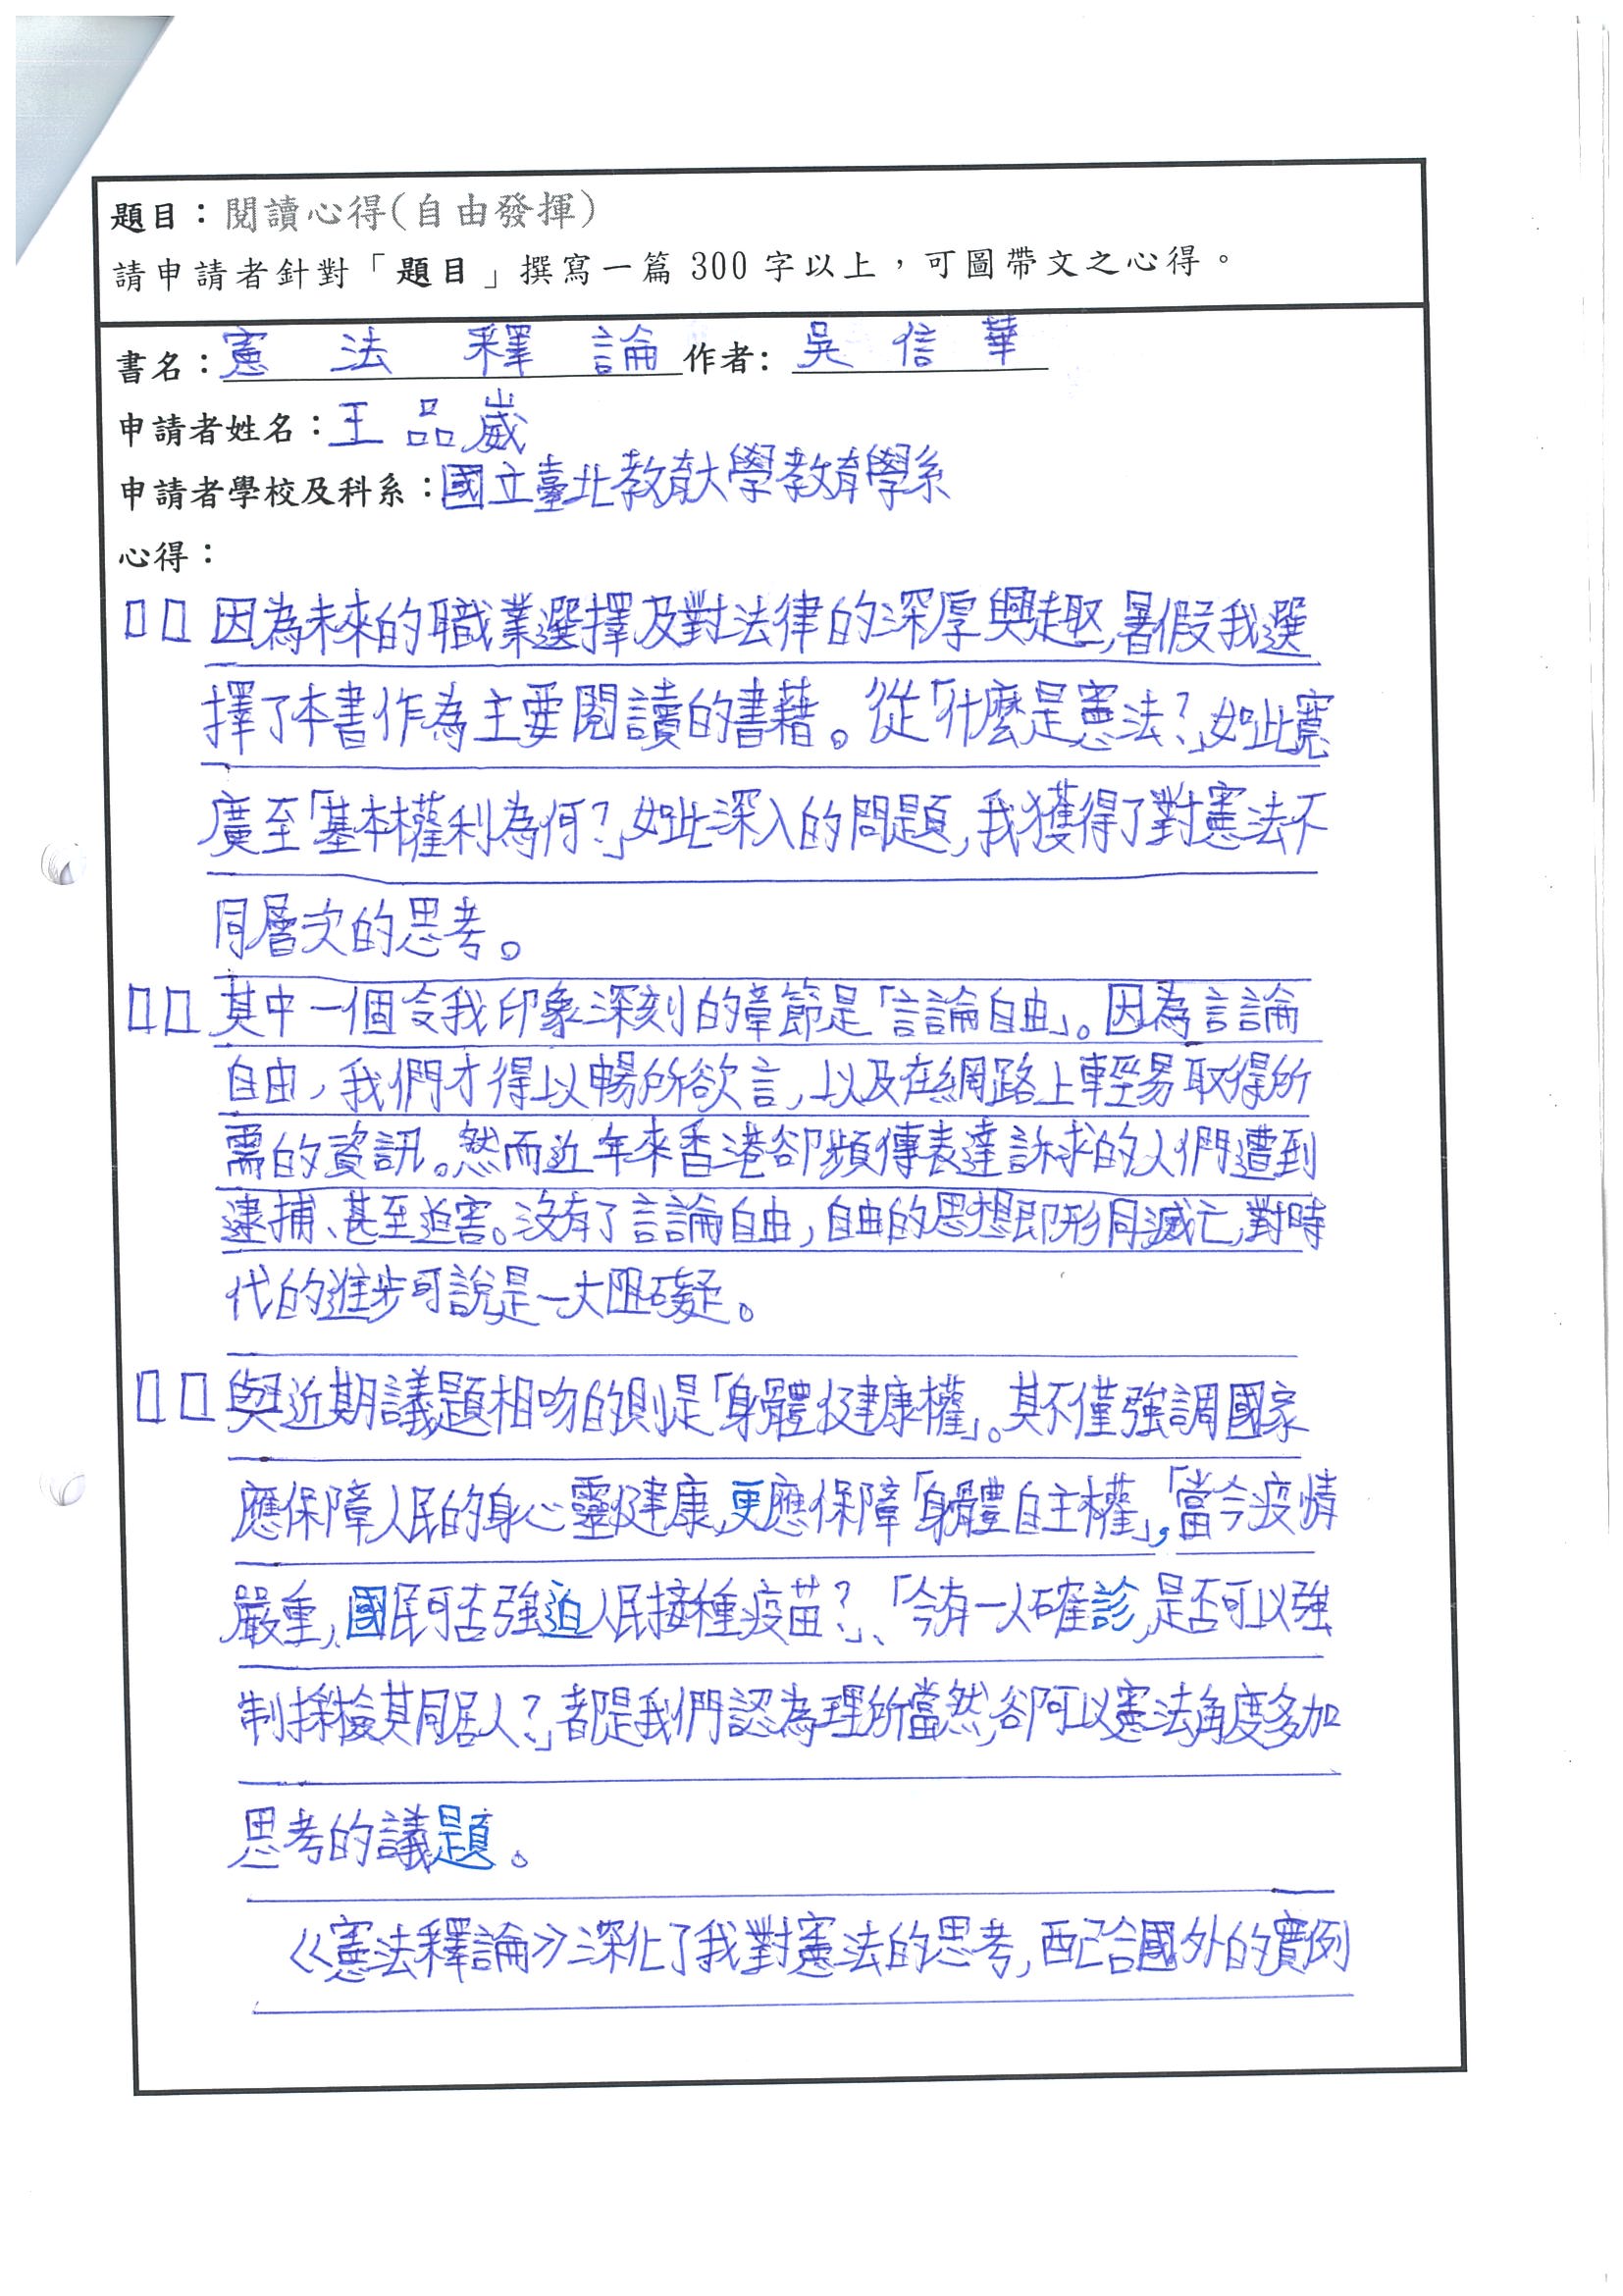 題目：閱讀心得(自由發揮)
請申請者針對「題目」撰寫一篇 300 字以上，可圖帶文之心得。
書名：憲法釋論 作者: 吳信華
申請者姓名：王品崴
申請者學校及科系：國立臺北教育大學教育學系
心得：
□□因為未來的職業選擇及對法律的深厚興趣,暑假我選
擇了本書作為主要閱讀的書藉。從「什麼是憲法?」如此寬
廣至「基本權利為何?」如此深入的問題,我獲得了對憲法不
同層次的思考。
□□其中一個令我印象深刻的章節是「言論自由」。因為言論
自由,我們才得以暢所欲言,以及在網路上輕易取得所
需的資訊。然而近年來香港卻頻傳表達訴求的人們遭到
逮捕、甚至迫害。沒有了言論自由,自由的思想即形同滅亡,對時
代的進步可說是一大阻礙。
□□與近期議題相吻的則是「身體健康權」。其不僅強調國家
應保障人民的身心靈健康,更應保障「身體自主權」,「當今疫情
嚴重,國民可否強迫人民接種疫苗?」、「今有一人確診,是否可以強
制採檢其同居人?」都是我們認為理所當然,卻可以憲法角度多加
思考的議題。
《憲法釋論》深化了我對憲法的思考,配合國外的實例